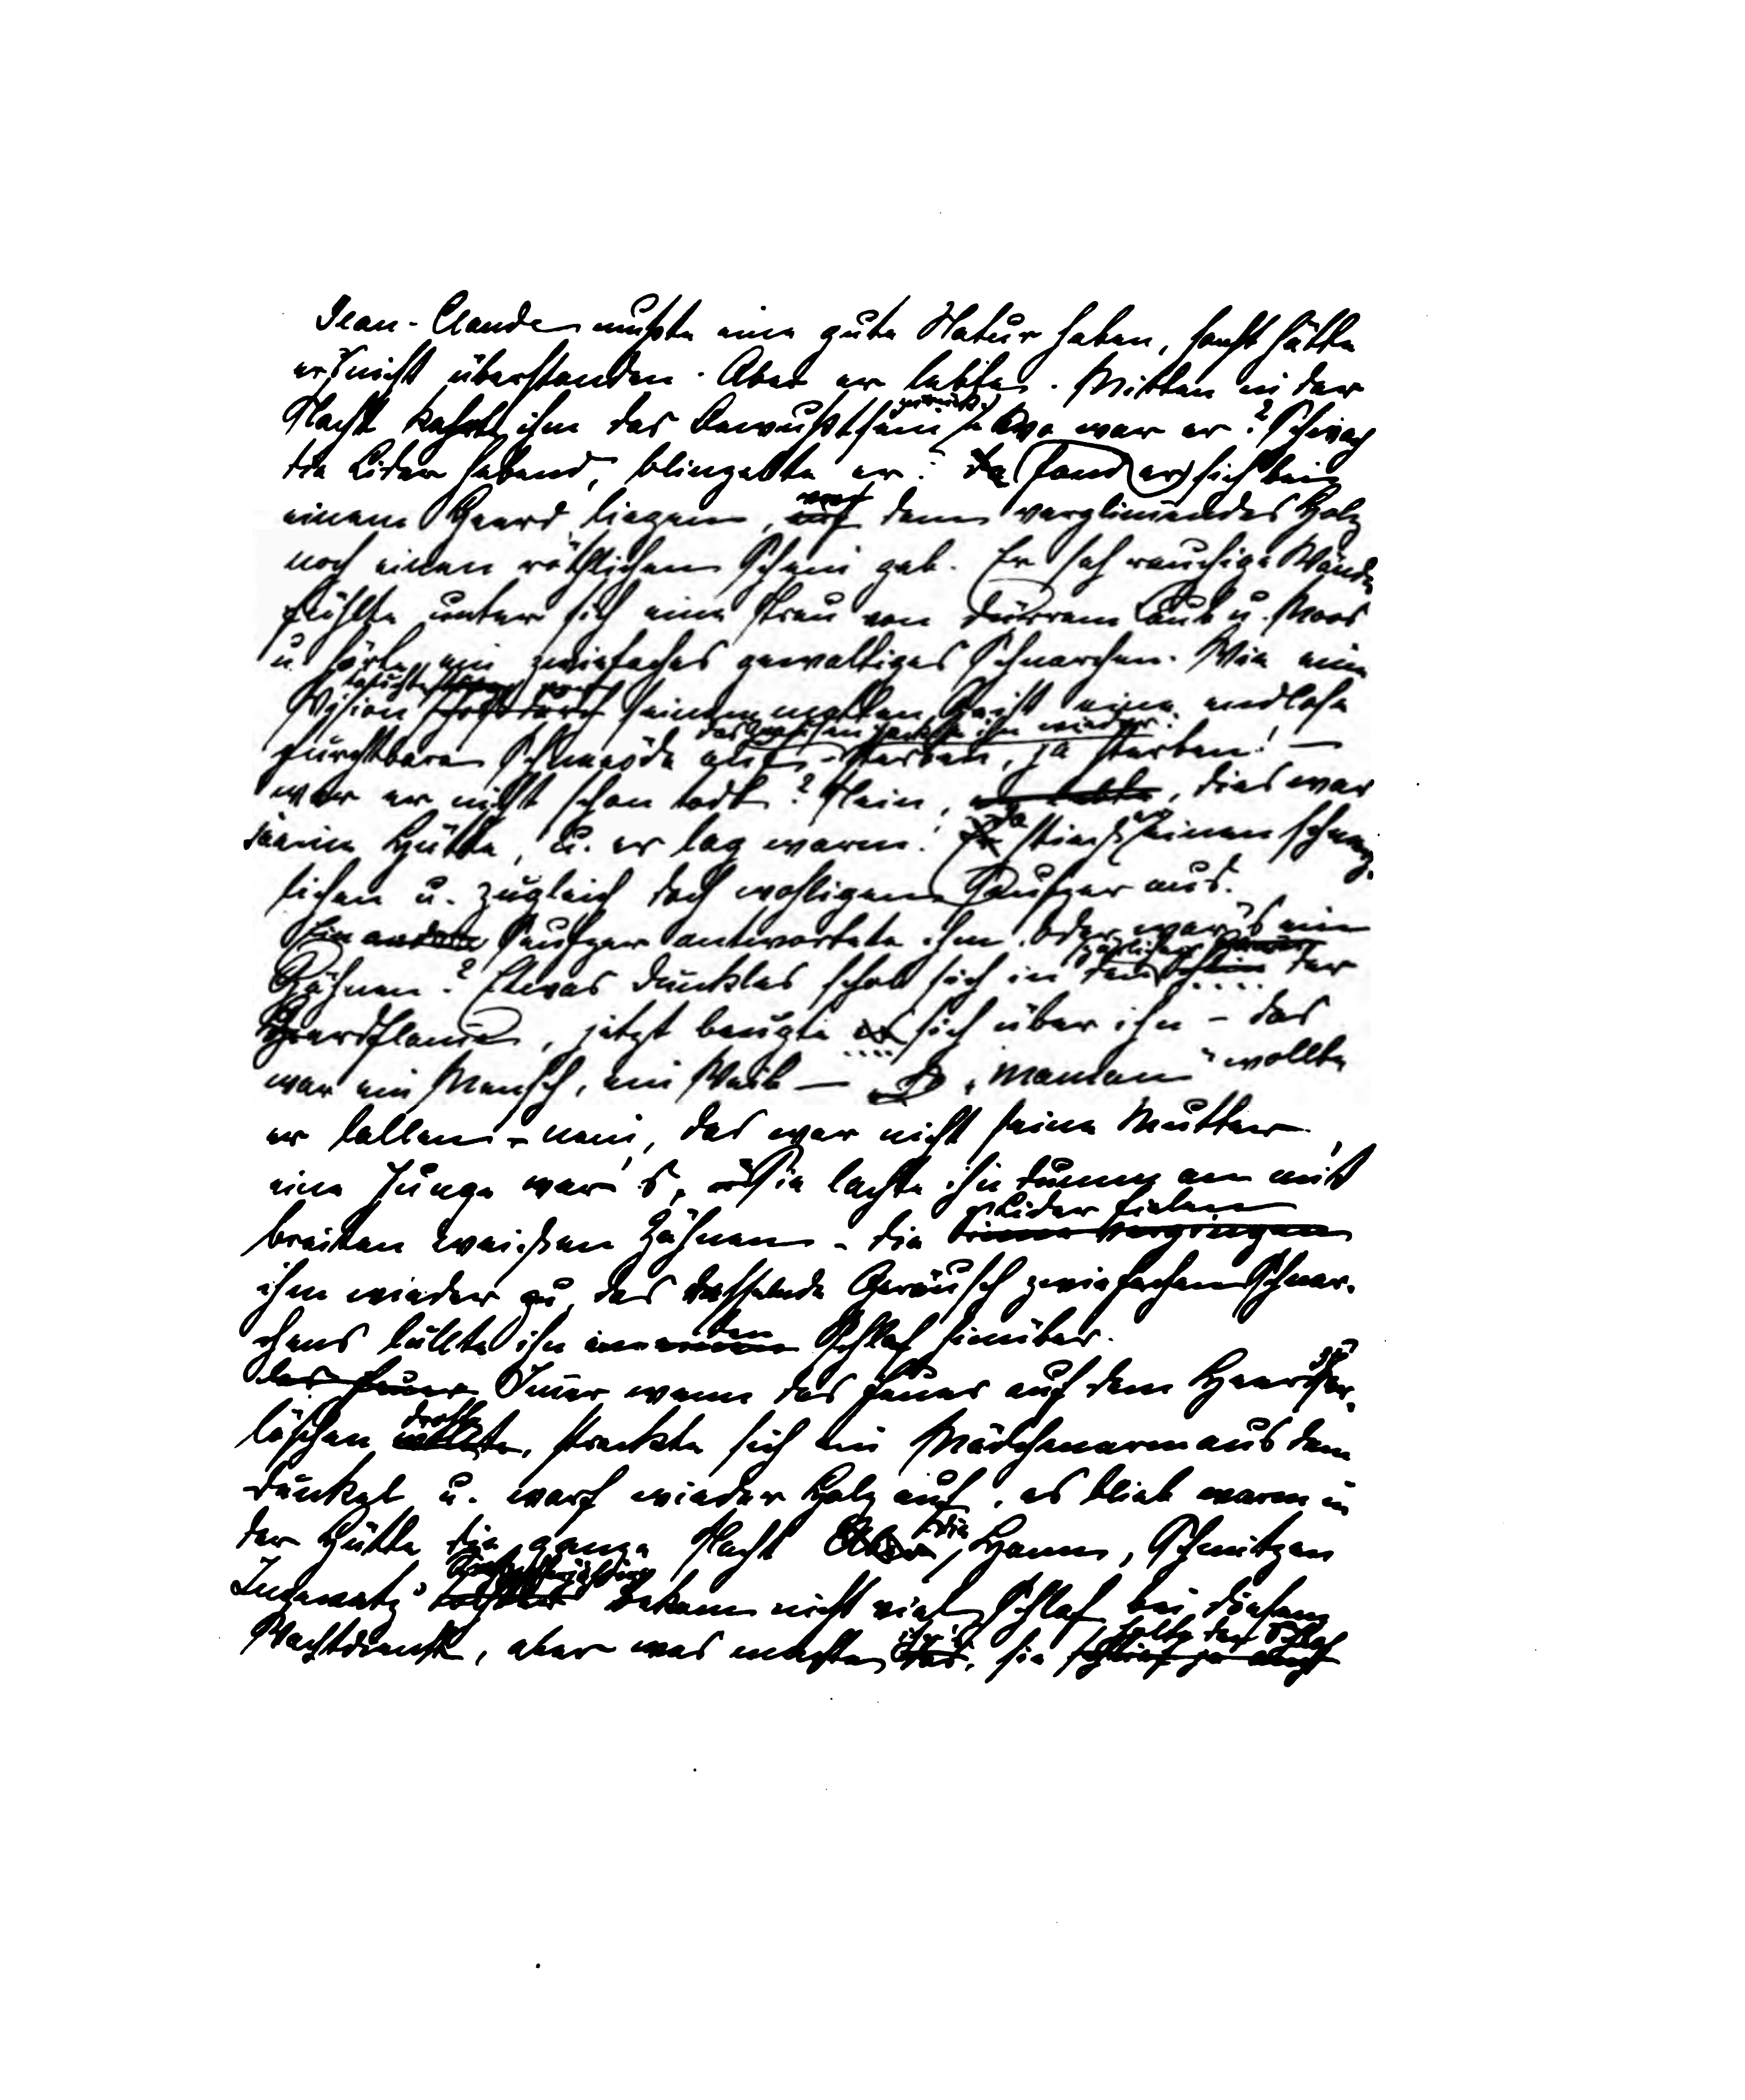 Jean-Claude mußte eine gute Natur haben, sonst hätte
er's nicht überstanden. Aber er lebte. Mitten in der
Nacht kehrte ihm das Bewußtsein zurück. Wo war er? Schwach
die Lider hebend, blinzelte er: da fand er sich bei
einem Heerd liegen, auf dem verglimmendes Holz
noch einen röthlichen Schein gab. Er sah rauchige Wände
fühlte unter sich eine Streu von dürrem Laub u. Moos
u. hörte ein zwiefaches gewaltiges Schnarchen. Wie eine
Vision tauchte vor seinem matten Geist eine endlose
furchtbare Schneeöde auf – sterben, ja sterben! –
das Grausen packte ihn wieder:
war er nicht schon todt? Nein, er lebte, dies war
ja eine Hütte, u. er lag warm! Da stieß er einen schmerz-
lichen u. zugleich doch wohligen Seufzer aus.
Ein andrer Seufzer antwortete ihm. Oder war's ein
Gähnen? Etwas Dunkles schob sich in den Schein der
Heerdflamme, jetzt beugte es sich über ihn – das
war ein Mensch, ein Weib – „maman" wollte
er lallen – nein, das war nicht seine Mutter,
eine Junge war's. Sie lachte ihn dumm an mit
breiten weißen Zähnen – die Lider fielen
ihm wieder zu, das Geräusch zwiefachen Schnar-
chens lullte ihn in den Schlaf hinüber.
das Feuer Immer wenn das Feuer auf dem Heerd zu er-
löschen drohte, streckte sich ein Mädchenarm aus dem
Dunkel u. warf wieder Holz auf, es blieb warm in
der Hütte die ganze Nacht. Aber die Hann, Schnitzen
bekam nicht viel Schlaf bei diesem
Nachtdienst, aber was machte ihr's, sie schlief ja auch